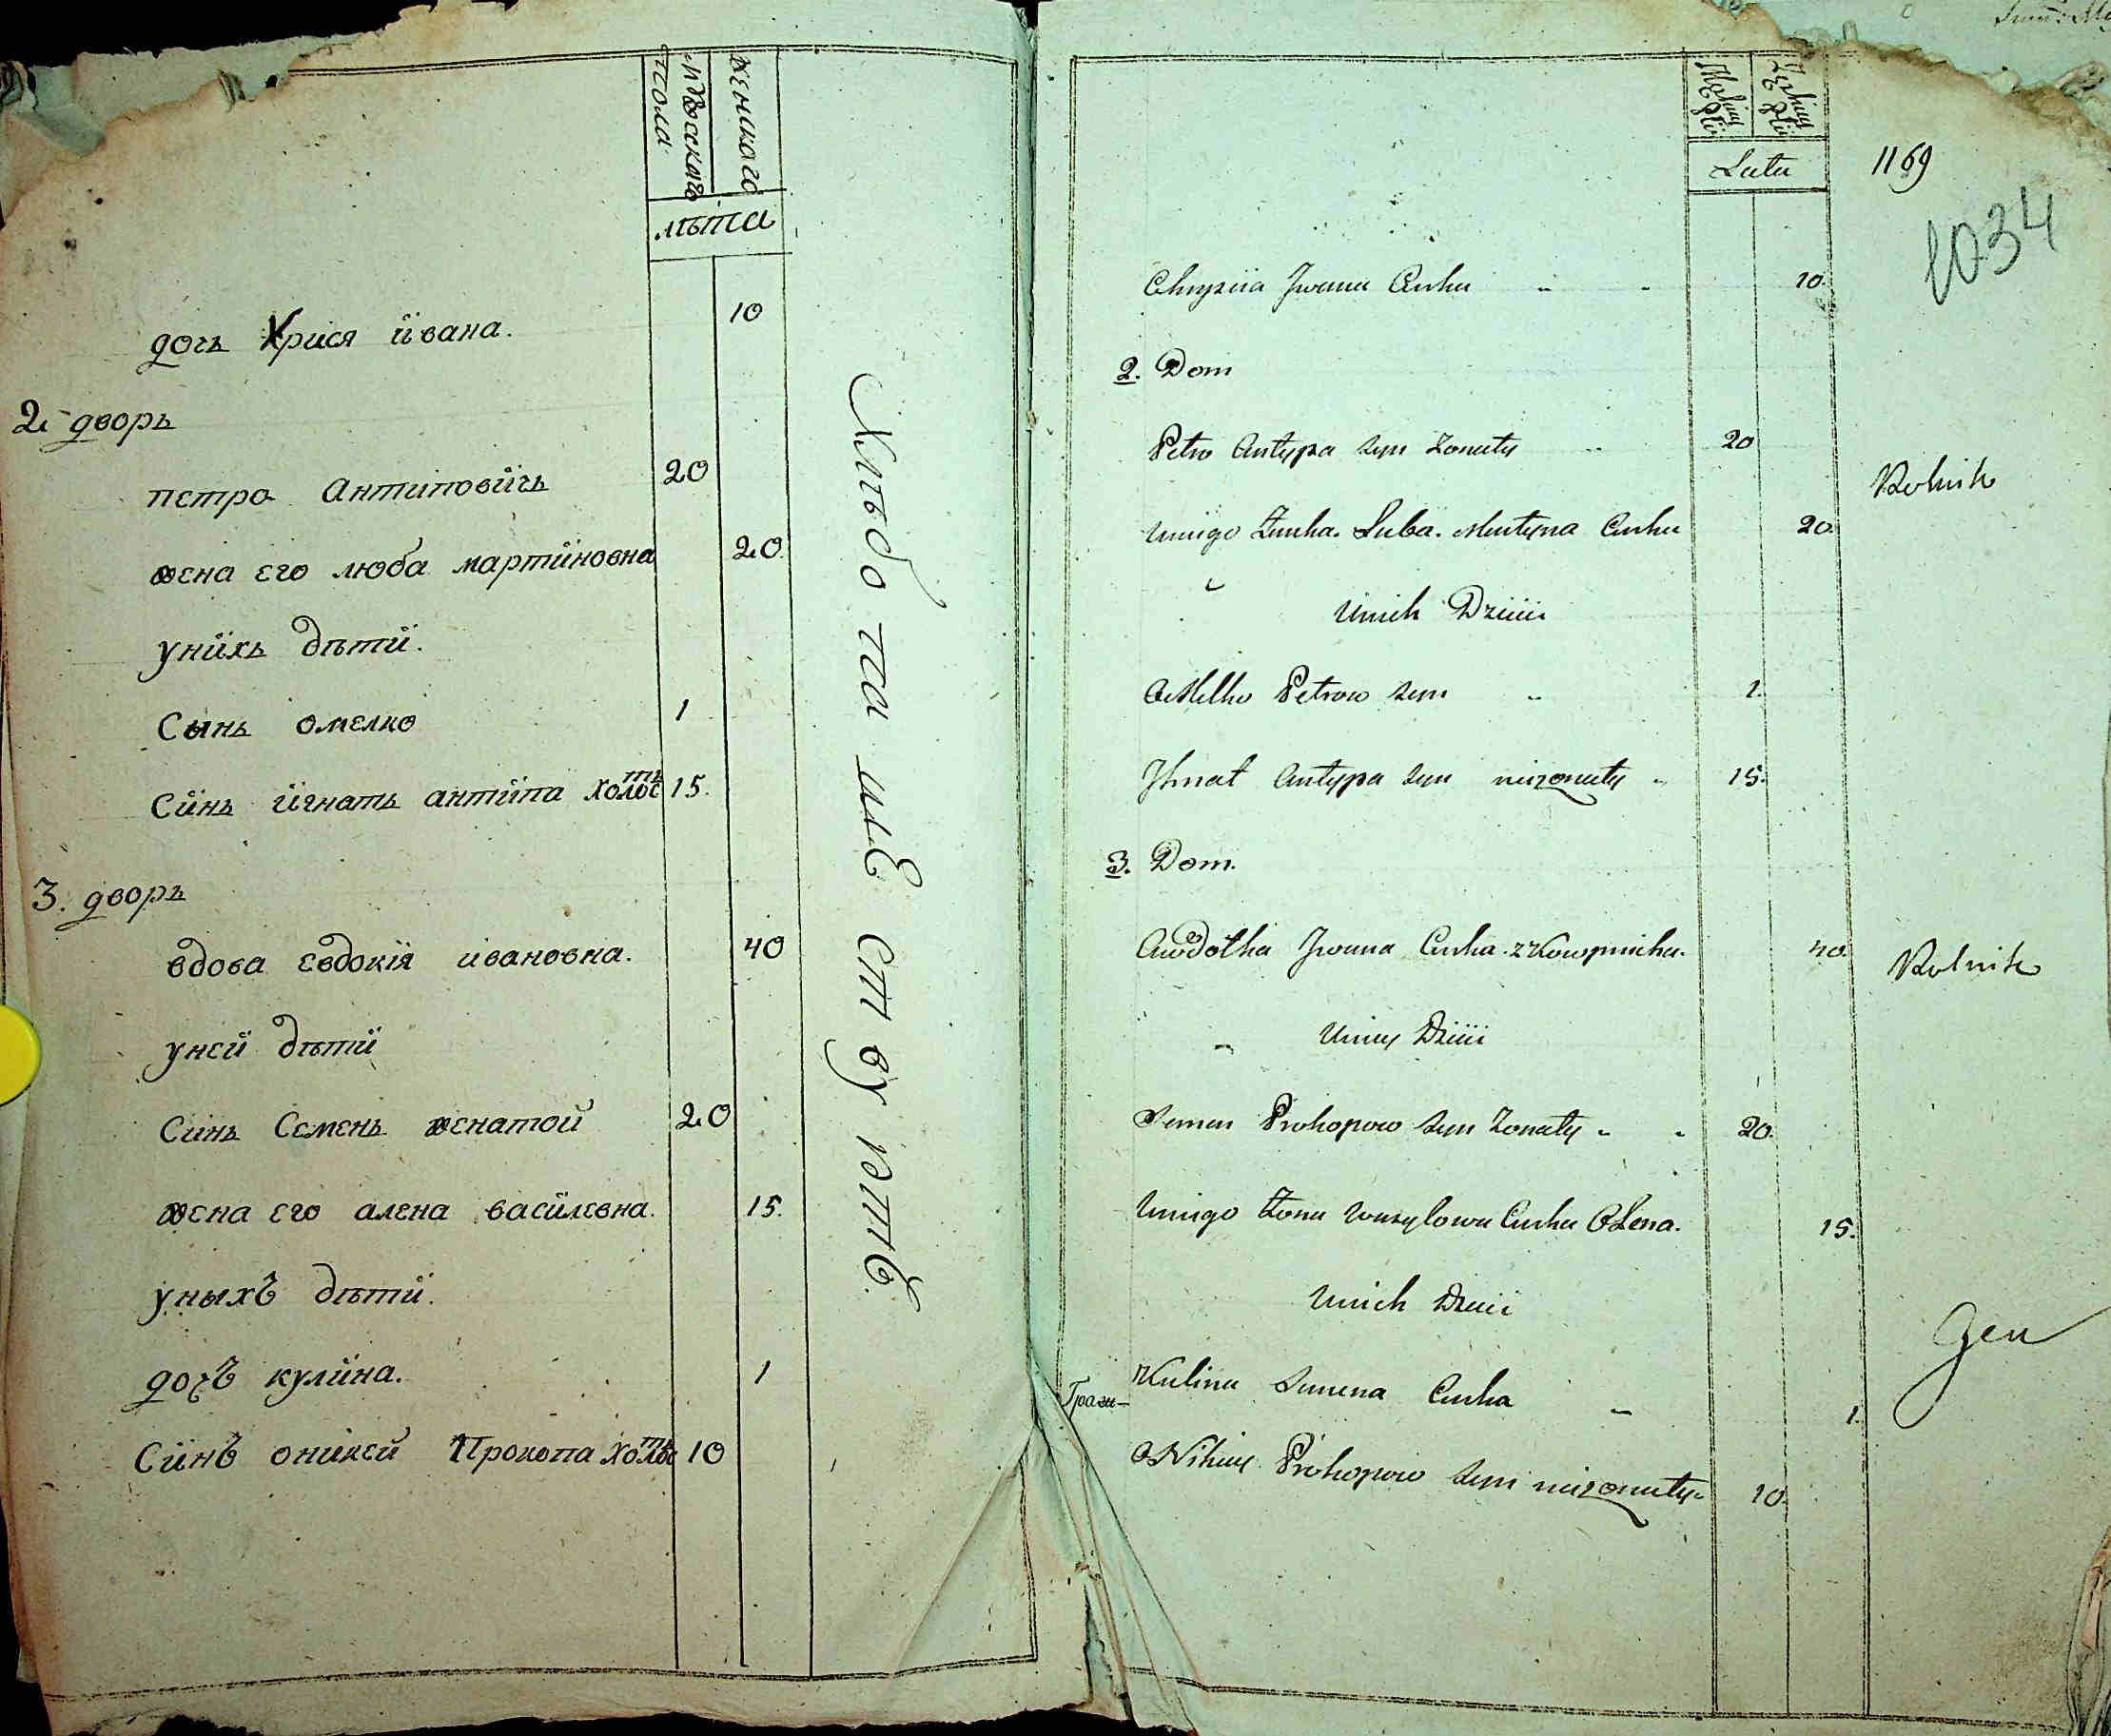 мѣжескаго
пола
женскаго
лѣта
дочь Хрися ѝвана. 10
2. дворъ
петро Антиповичь 20
жена его люба мартиновна 20.
унихъ дѣти.
Сынъ омелко 1
Синъ игнатъ антипа холостъ 15.
3. дворъ
вдова евдокия ивановна. 40
уней дѣти
Синъ Семенъ женатой 20
жена его алена василевна. 15.
уныхъ дѣти.
дочъ кулина. 1
Синъ оникей Прокопа холостъ 10
Хлѣбо па ше ст ву ютъ.
Męskiey Płci
Żeńskiey Płci
Lata
1169
1034
Chrysiia Jwana Curka " " 10.
2. Dom
Petro Antypa syn Zonaty " 20
Rolnik
Uniego Zunka. Luba. Martyna Curka 20.
Unich Dzieii
OMelko Petrow syn " 1.
Jhnat Antypa syn niezonaty " 15.
3. Dom.
Awdotka Jwana Curka. 40.
Rolnik
" Uniey Dzieii
Semen Prokopow syn Zonaty " " 20.
Uniego Zona Wasylowa Curka OLena. 15.
Unich Dzieii
Kulina Semena Curka " 1.
ONikiey Prokopow syn niezonaty " 10.